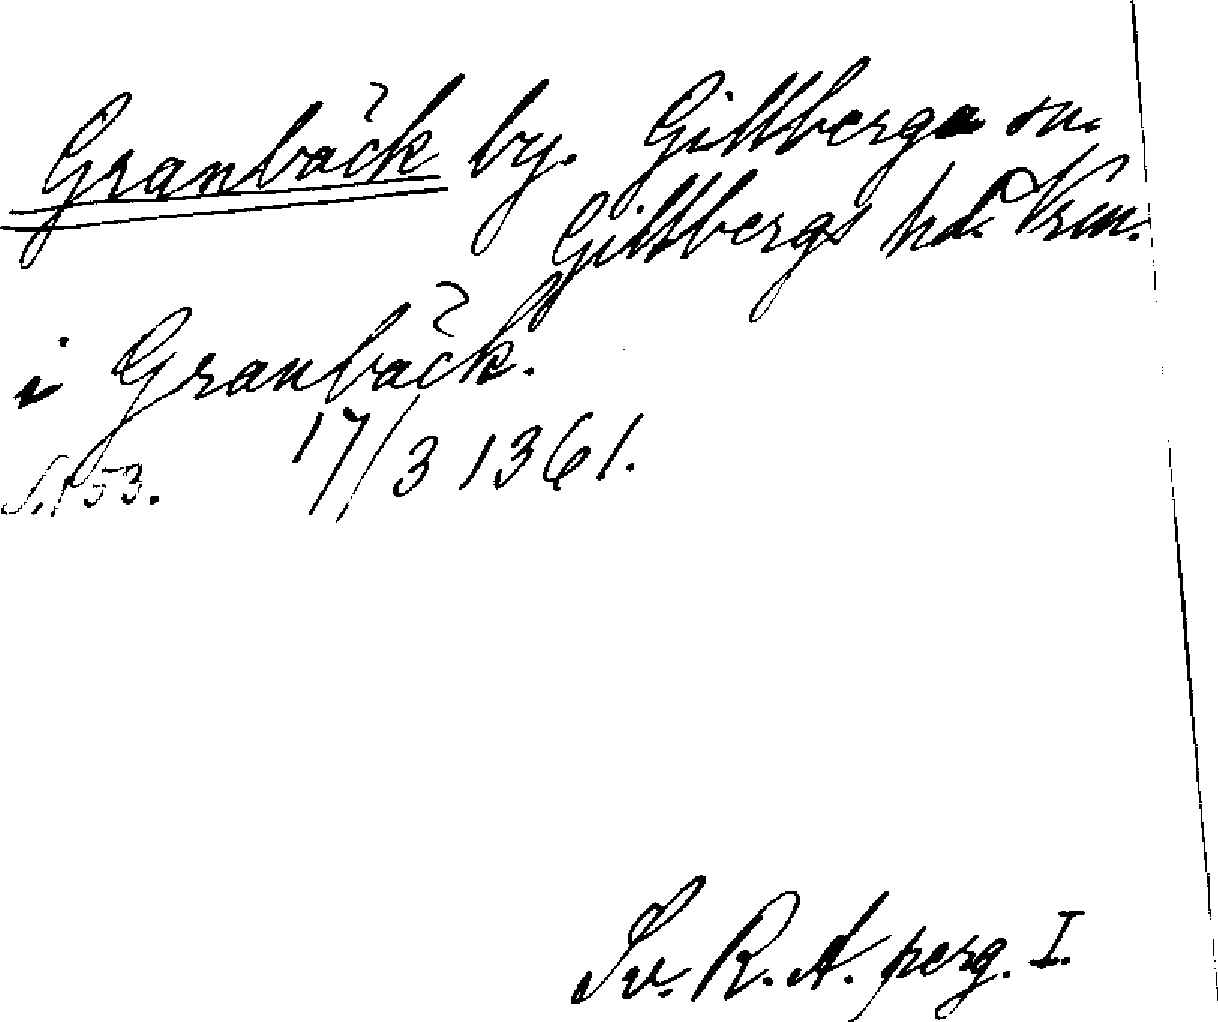 Granbäck by. Gillberga sn.
Gillbergs hd. Vrm.
i Granbäck.
S. 153. 17/3 1361.
Sv. R. A. perg. I.